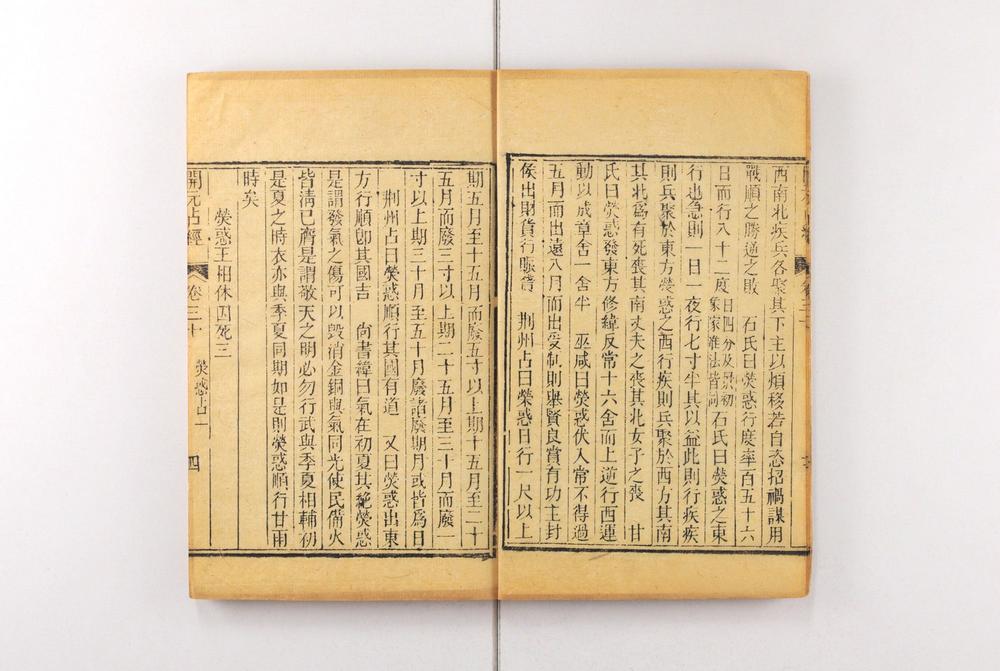 西南北疾兵各聚其下主以煩移若自恣招禍謀用
戰順之勝逆之敗 石氏曰熒惑行度率百五十六
日而行八十二度 日四分及景初 衆家雜法皆同 石氏曰熒惑之東
行也急則一日一夜行七寸半其以益此則行疾疾
則兵聚於東方熒惑之西行疾則兵聚於西方其南
其北爲有死喪其南丈夫之喪其北女子之喪 甘
氏曰熒惑發東方修緯反常十六舍而上逆行西運
動以成章舍一舍半 巫咸曰熒惑伏入常不得過
五月而出遠八月而出受制則舉賢良賞有功主封
侯出財貨行賑 荆州占曰熒惑日行一尺以上
期五月至十五月而廢五寸以上期十五月至二十
五月而廢三寸以上期二十五月至三十月而廢一
寸以上期三十月至五十月廢諸廢期月或皆爲日
荆州占曰熒惑順行其國有道 又曰熒惑出東
方行順卽其國吉 尚書緯曰氣在初夏其紀熒惑
是謂發氣之傷可以毀消金銅與氣同光使民備火
皆清已齋是謂敬天之明必勿行武與季夏相輔初
是夏之時衣赤與季夏同期如是則熒惑順行甘雨
時矣
熒惑王相休囚死三
開元占經 卷三十 熒惑占一 四